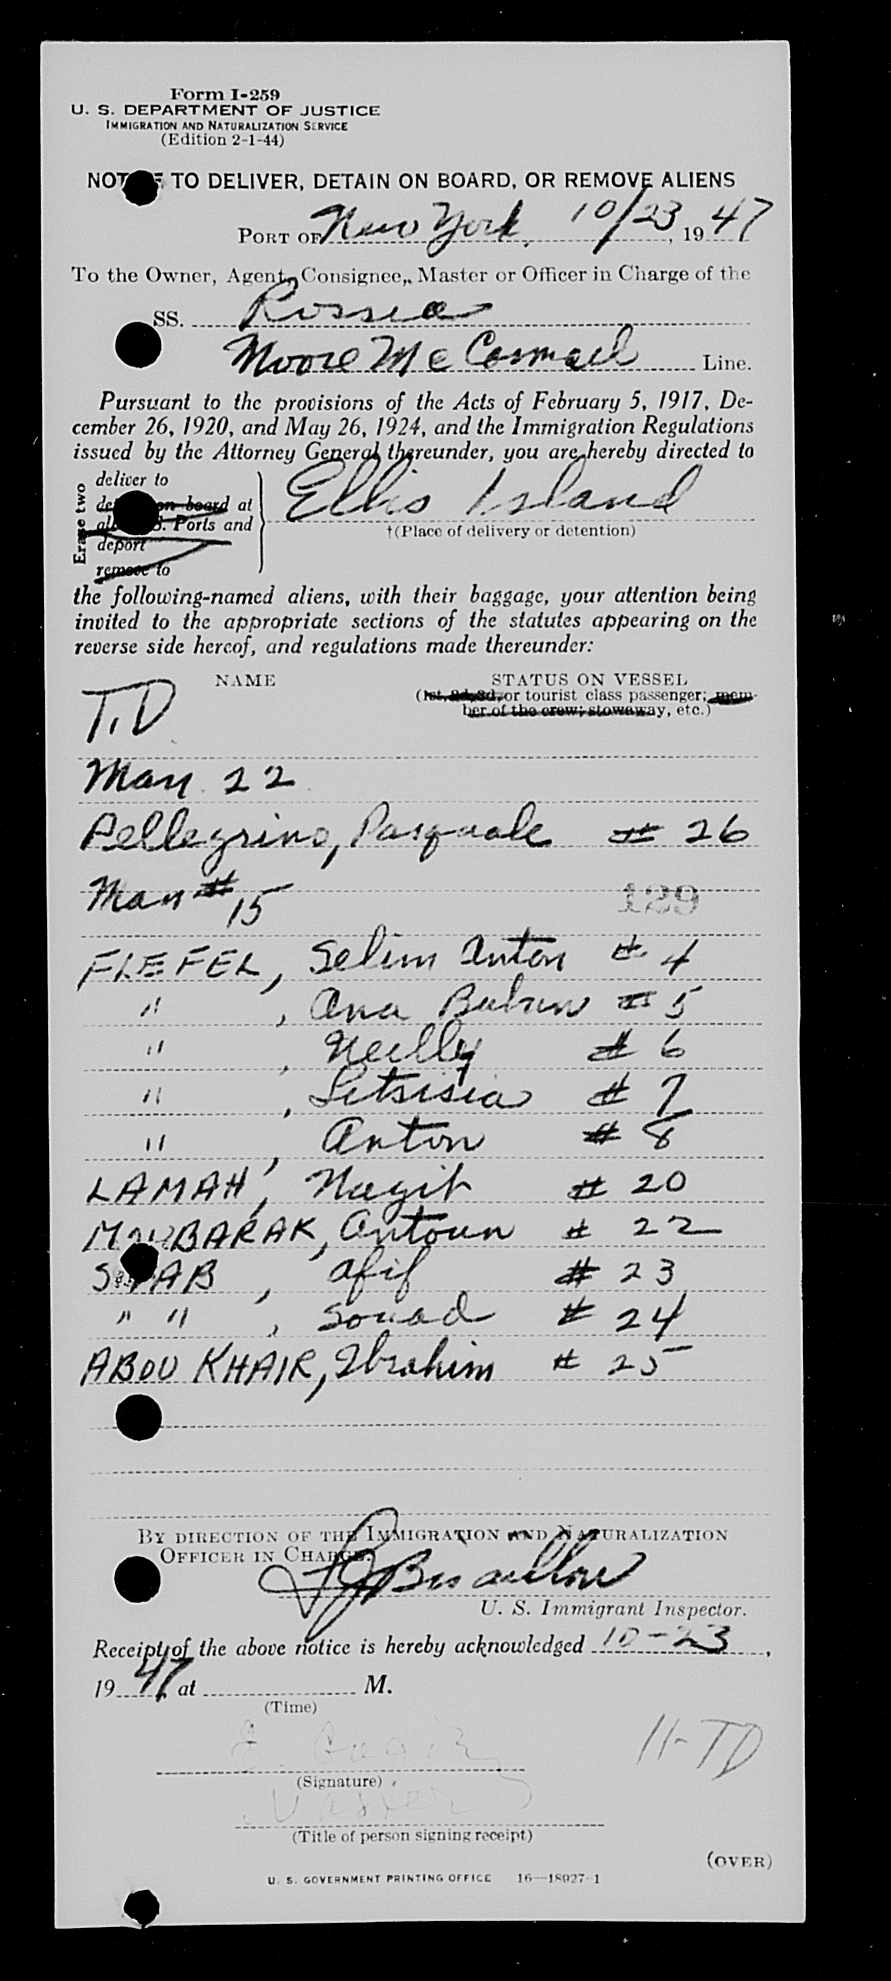 Form I-259
U. S. DEPARTMENT OF JUSTICE
IMMIGRATION AND NATURALIZATION SERVICE
(Edition 2-1-44)
NOTICE TO DELIVER, DETAIN ON BOARD, OR REMOVE ALIENS
PORT OF New York, 10/23, 1947
To the Owner, Agent, Consignee, Master or Officer in Charge of the
SS. Rossia
Moore McCormack Line.
Pursuant to the provisions of the Acts of February 5, 1917, De-
cember 26, 1920, and May 26, 1924, and the Immigration Regulations
issued by the Attorney General thereunder, you are hereby directed to
Erase two
deliver to
on board at
Ports and
deport
remove to
Ellis Island
†(Place of delivery or detention)
the following-named aliens, with their baggage, your attention being
invited to the appropriate sections of the statutes appearing on the
reverse side hereof, and regulations made thereunder:
NAME STATUS ON VESSEL
(1st, 2d, 3d, or tourist class passenger; mem-
ber of the crew; stowaway, etc.)
T.D
Man. 22
Pellegrino, Pasquale # 26
Man # 15
129
FLEFEL, Selim Anton # 4
" , Ana # 5
" , Neilly # 6
" , Letsisia # 7
" , Anton # 8
LAMAH, Nagib # 20
MOUBARAK, Antoun # 22
Afif # 23
" " , Souad # 24
ABOU KHAIR, Ibrahim # 25
BY DIRECTION OF THE IMMIGRATION AND NATURALIZATION
OFFICER IN CHARGE.
U. S. Immigrant Inspector.
Receipt of the above notice is hereby acknowledged 10-23,
1947, at M.
(Time)
11-TD
(Signature)
Master
(Title of person signing receipt)
(OVER)
U. S. GOVERNMENT PRINTING OFFICE 16—18927-1